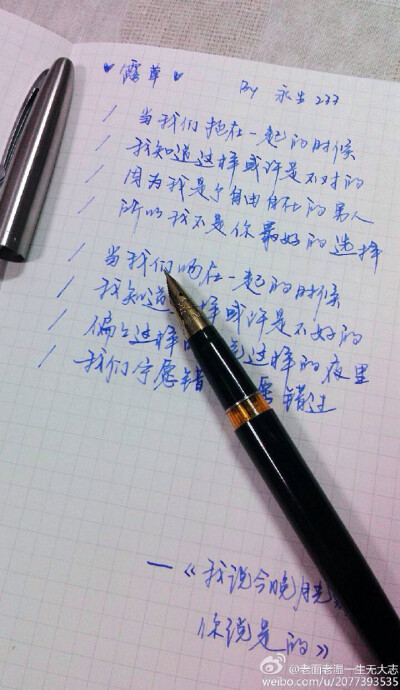 ♥ 草 ♥ By 永生233
/ 当我们抱在一起的时候
/ 我知道这样或许是不对的
/ 因为我是个自由自在的男人
/ 所以我不是你最好的选择
/ 当我们吻在一起的时候
/ 我知道 样或许是不好的
/ 偏々这样 这样的夜里
/ 我们宁愿错 愿错过
—《我说今晚月光
你说是的》
@老面老湿一生无大志
weibo.com/u/2077393535